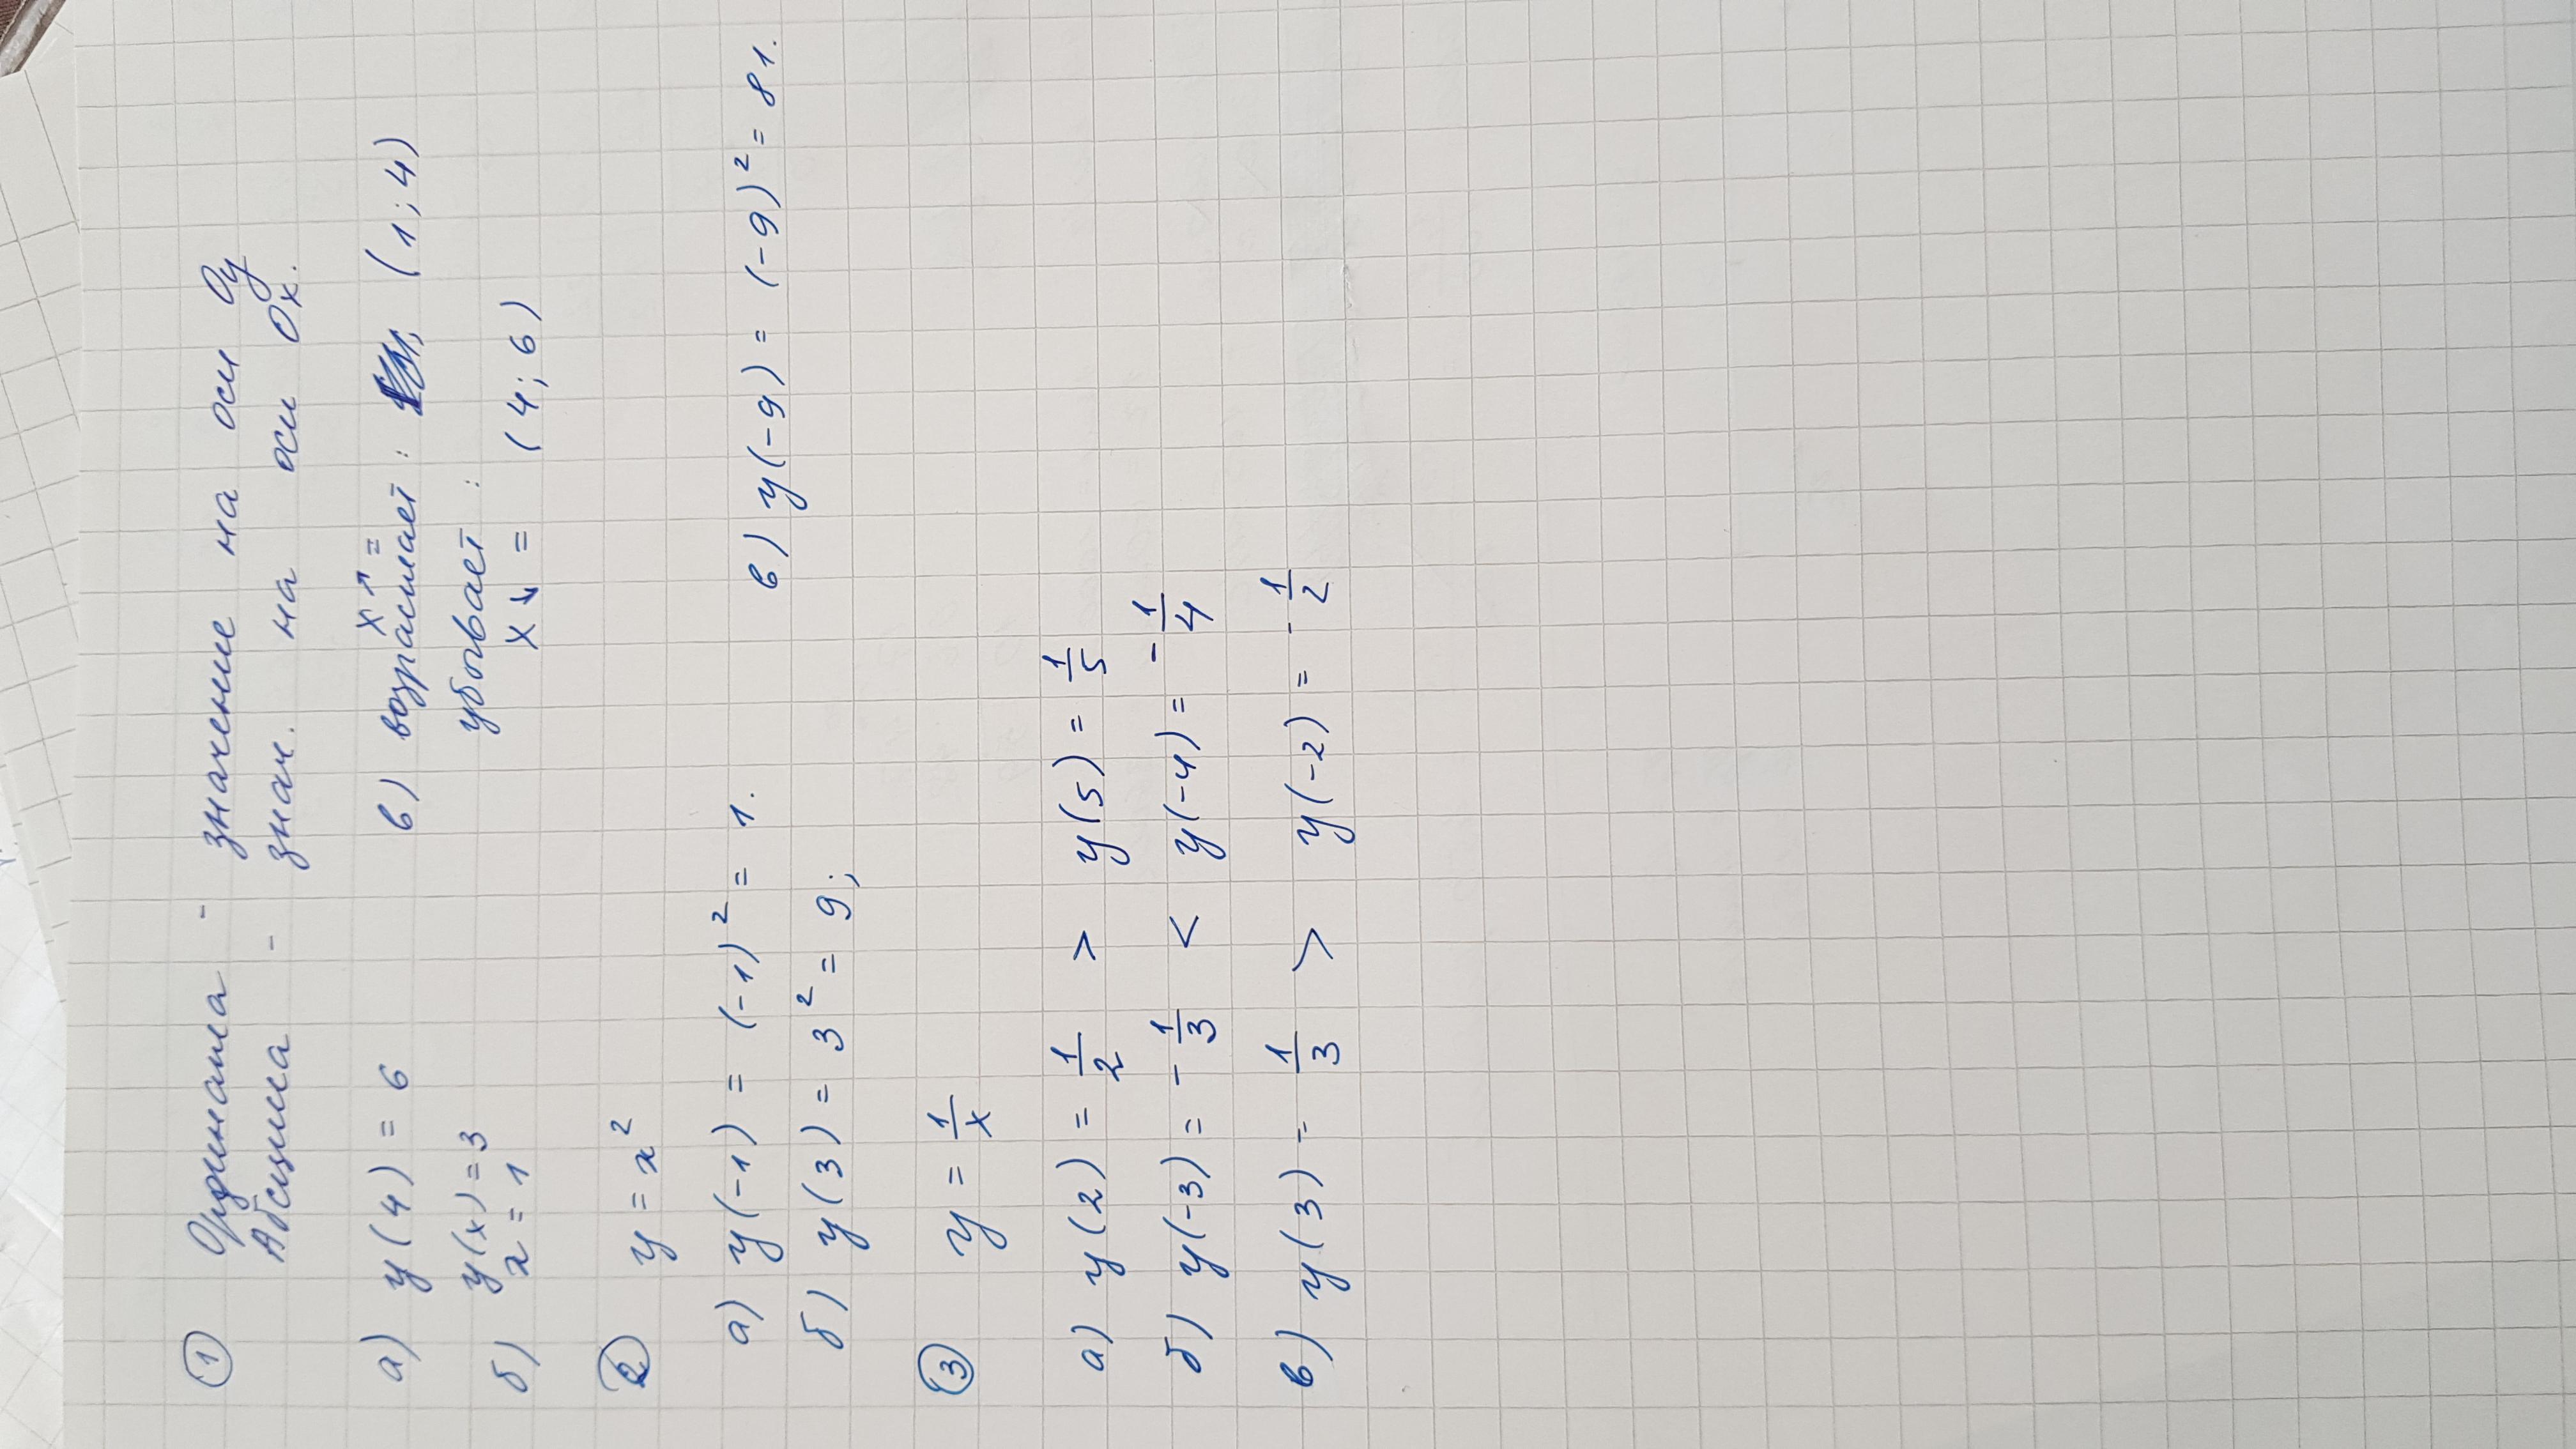 ① Ордината - значение на оси Oy
Абсцисса - знач. на оси Ox.
а) y(4) = 6
б) y(x) = 3
x = 1
в) возрастает : (1; 4)
x↗ =
убывает :
x↘ = (4; 6)
② y = x²
а) y(-1) = (-1)² = 1.
б) y(3) = 3² = 9;
в) y(-9) = (-9)² = 81.
③ y = 1/x
а) y(2) = 1/2 > y(5) = 1/5
б) y(-3) = -1/3 < y(-4) = -1/4
в) y(3) = 1/3 > y(-2) = -1/2